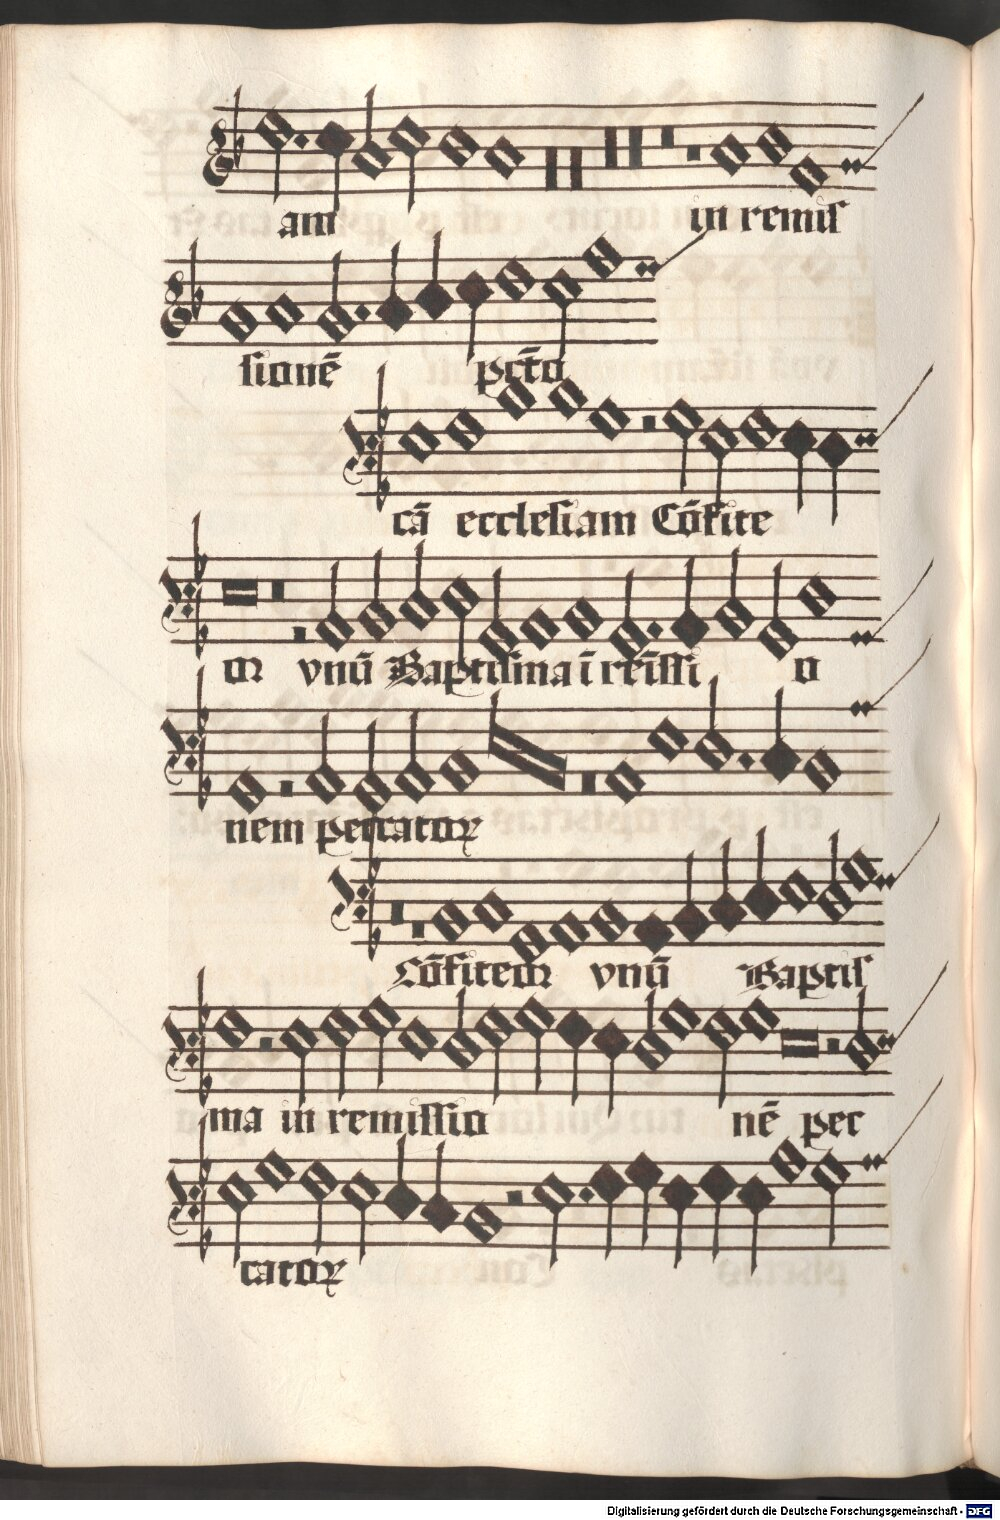 am in remis
sionē pctō
cā ecclesiam Cōfite
or vnū Baptisma ī reīssi o
nem peccatoꝝ
Cōfiteor vnū Baptis
ma in remissio nē pec
catoꝝ
Digitalisierung gefördert durch die Deutsche Forschungsgemeinschaft - DFG